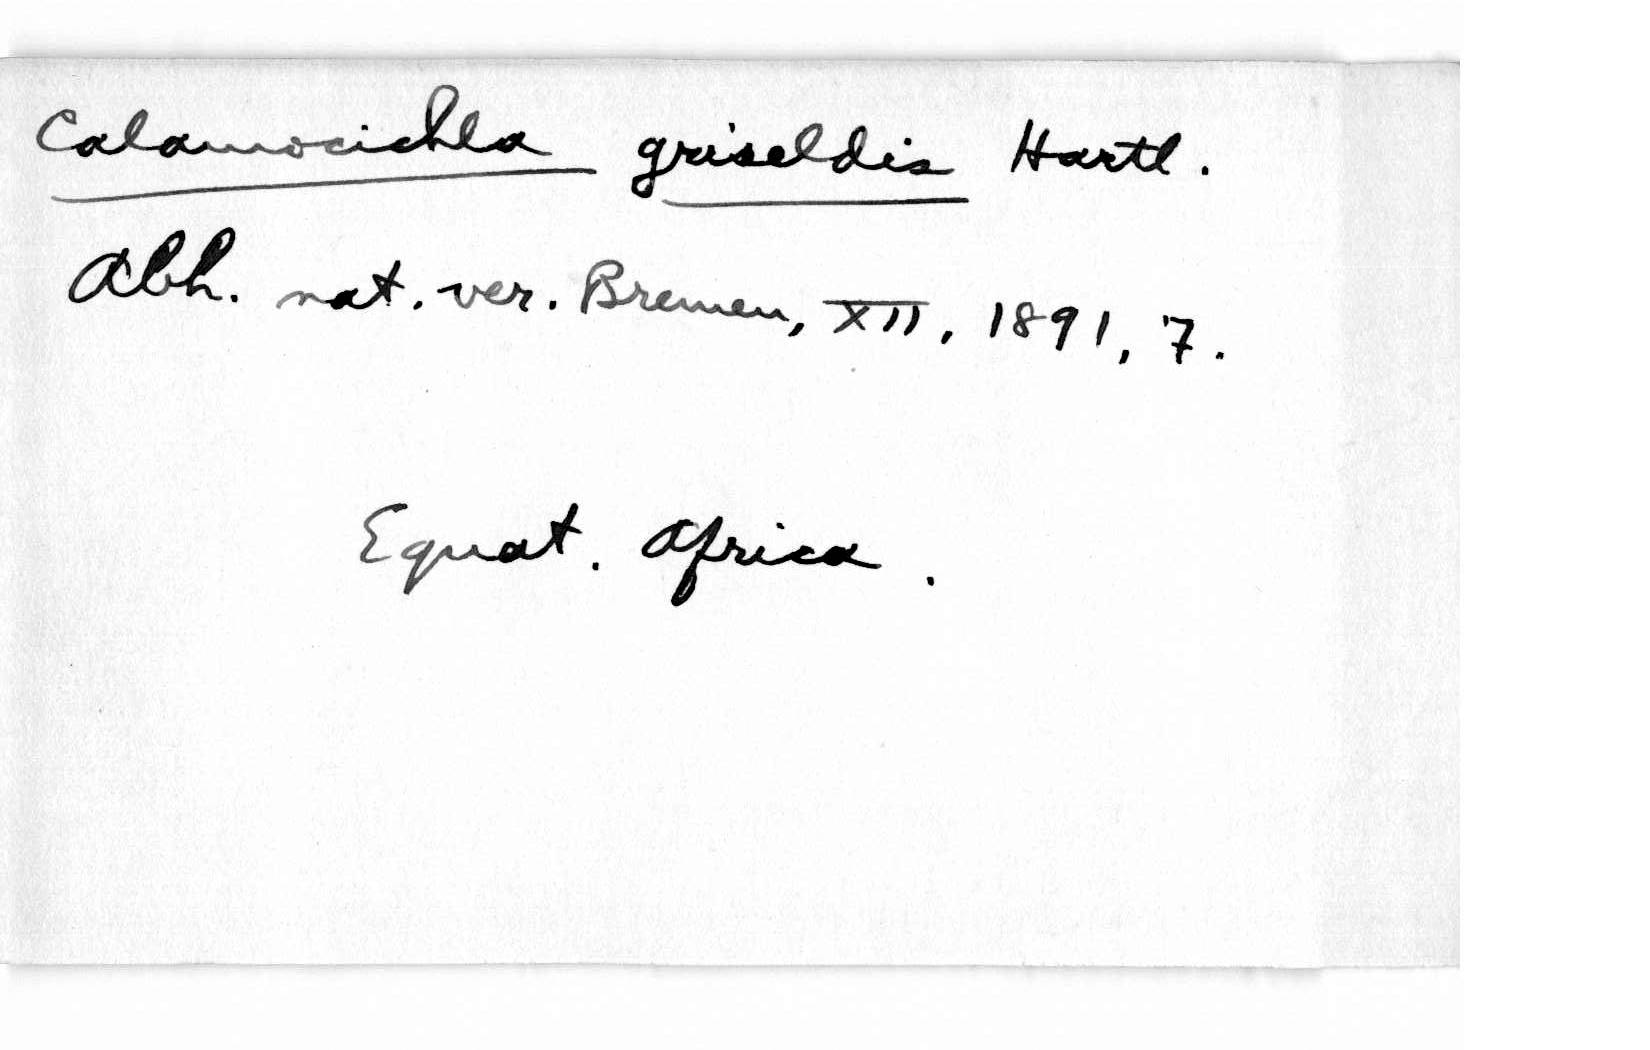 Calamocichla griseldis Hartl.
Abh. nat. ver. Bremen, XII, 1891, 7.
Equat. Africa.